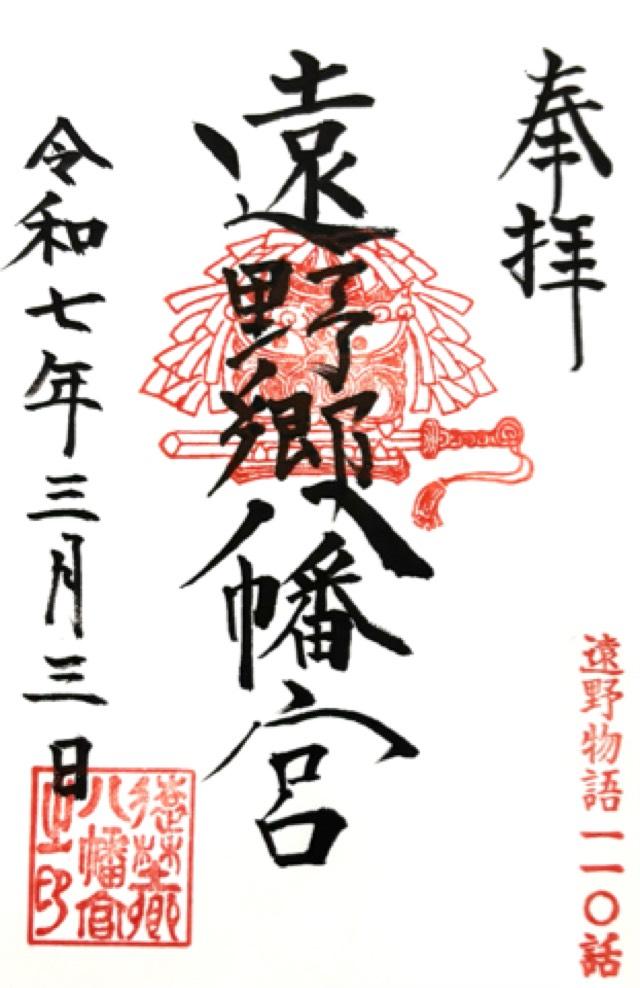 奉拝
遠野物語一一〇話
遠野郷八幡宮
令和七年三月三日
遠野郷
八幡宮
之印